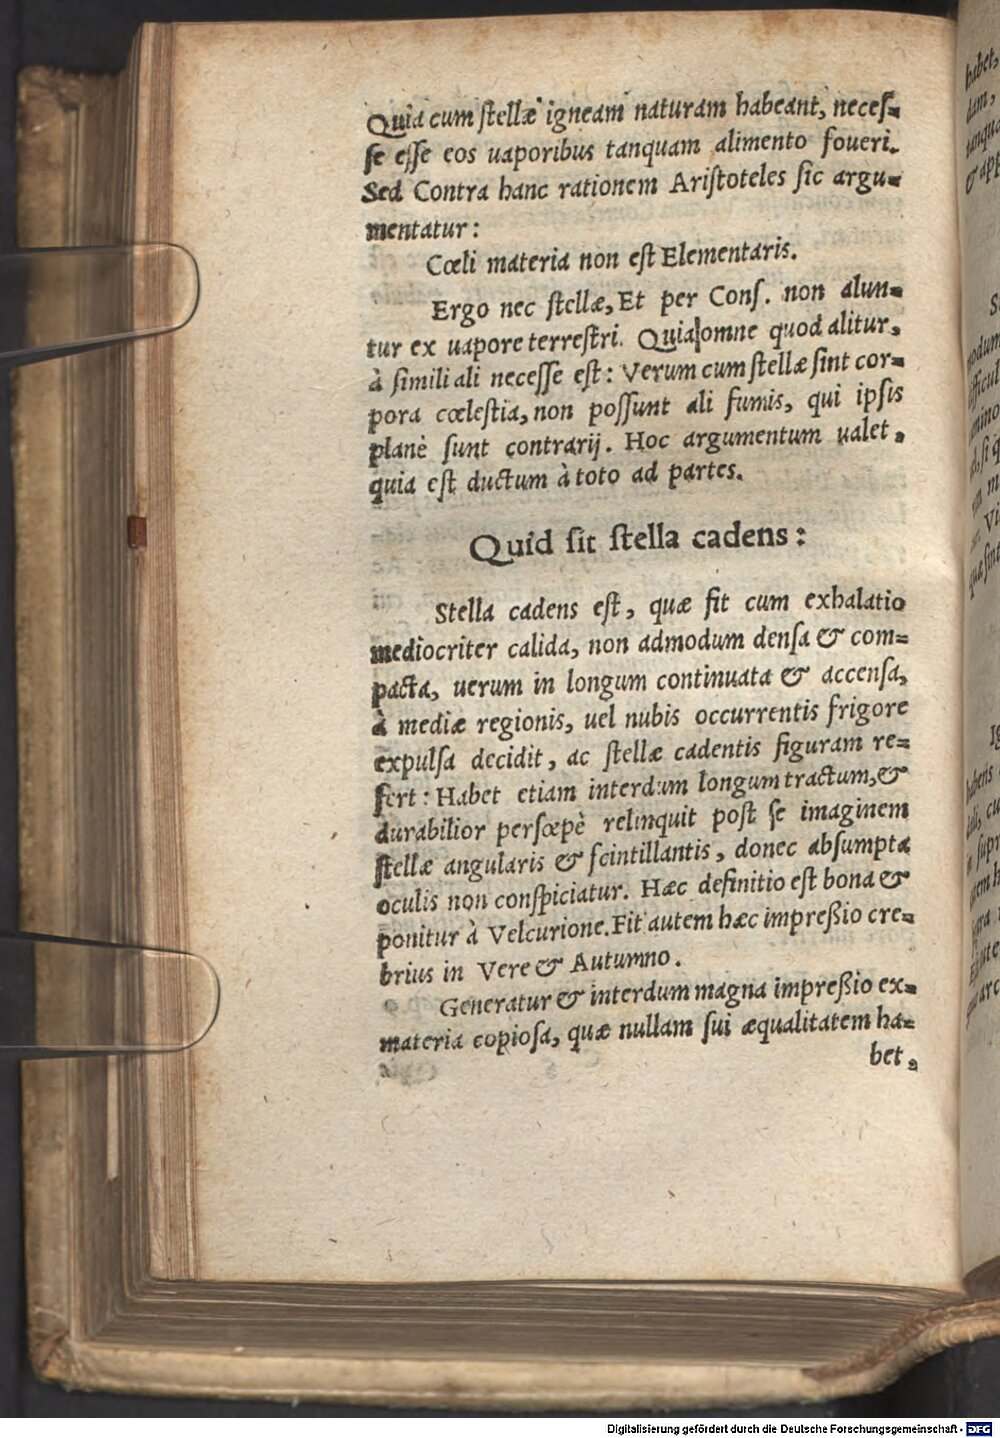 Quia cum ſtellæ igneam naturam habeant, neceſ-
ſe eſſe eos uaporibus tanquam alimento foueri.
Sed Contra hanc rationem Ariſtoteles ſic argu-
mentatur:
Cœli materia non eſt Elementaris.
Ergo nec ſtellæ, Et per Conſ. non alun-
tur ex uapore terreſtri. Quia omne quod alitur,
à ſimili ali neceſſe eſt: Verum cum ſtellæ ſint cor-
pora cœleſtia, non poſſunt ali fumis, qui ipſis
planè ſunt contrarij. Hoc argumentum ualet,
quia eſt ductum à toto ad partes.
Quid ſit ſtella cadens:
Stella cadens eſt, quæ fit cum exhalatio
mediocriter calida, non admodum denſa & com=
pacta, uerum in longum continuata & accenſa,
à mediæ regionis, uel nubis occurrentis frigore
expulſa decidit, ac ſtellæ cadentis figuram re=
fert: Habet etiam interdum longum tractum, &
durabilior perſœpè relinquit poſt ſe imaginem
ſtellæ angularis & ſcintillantis, donec abſumpta
oculis non conſpiciatur. Hæc definitio eſt bona &
ponitur à Velcurione. Fit autem hæc impreßio cre-
brius in Vere & Autumno.
Generatur & interdum magna impreßio ex-
materia copioſa, quæ nullam ſui æqualitatem ha-
bet,
habet,
dam,
tanqua
& app
Digitalisierung gefördert durch die Deutsche Forschungsgemeinschaft - DFG